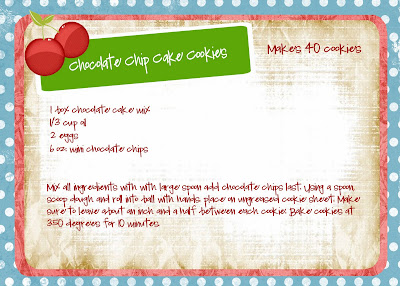 Chocolate Chip Cake Cookies
Makes 40 cookies
1 box chocolate cake mix
1/3 cup oil
2 eggs
6 oz. mini chocolate chips
Mix all ingredients with with large spoon add chocolate chips last. Using a spoon,
scoop dough and roll into ball with hands, place on ungreased cookie sheet. Make
sure to leave about an inch and a half between each cookie. Bake cookies at
350 degrees for 10 minutes.